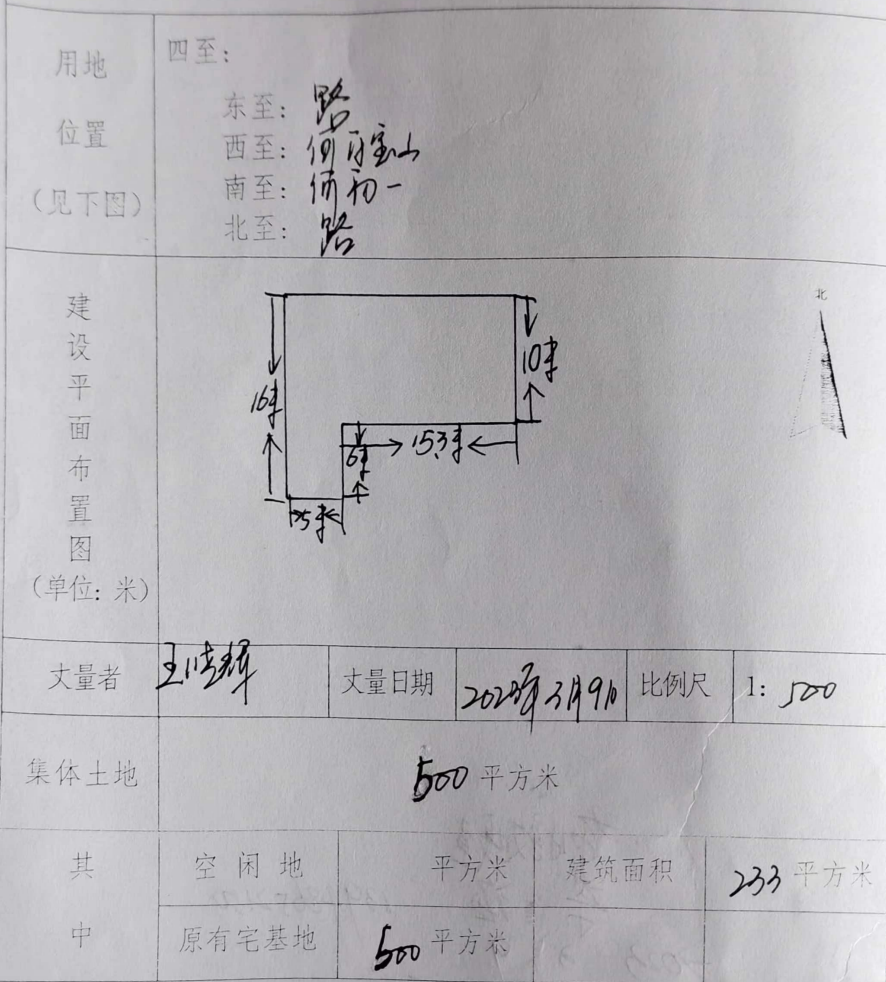 用地位置（见下图）
四至：
东至：路
西至：何可宝山
南至：何初一
北至：路
建设平面布置图（单位：米）
北
16米
10米
6米
15.3米
5米
丈量者
丈量日期 2023年3月9日 比例尺 1：500
集体土地 500平方米
其中 空闲地 平方米 建筑面积 233平方米
原有宅基地 500平方米